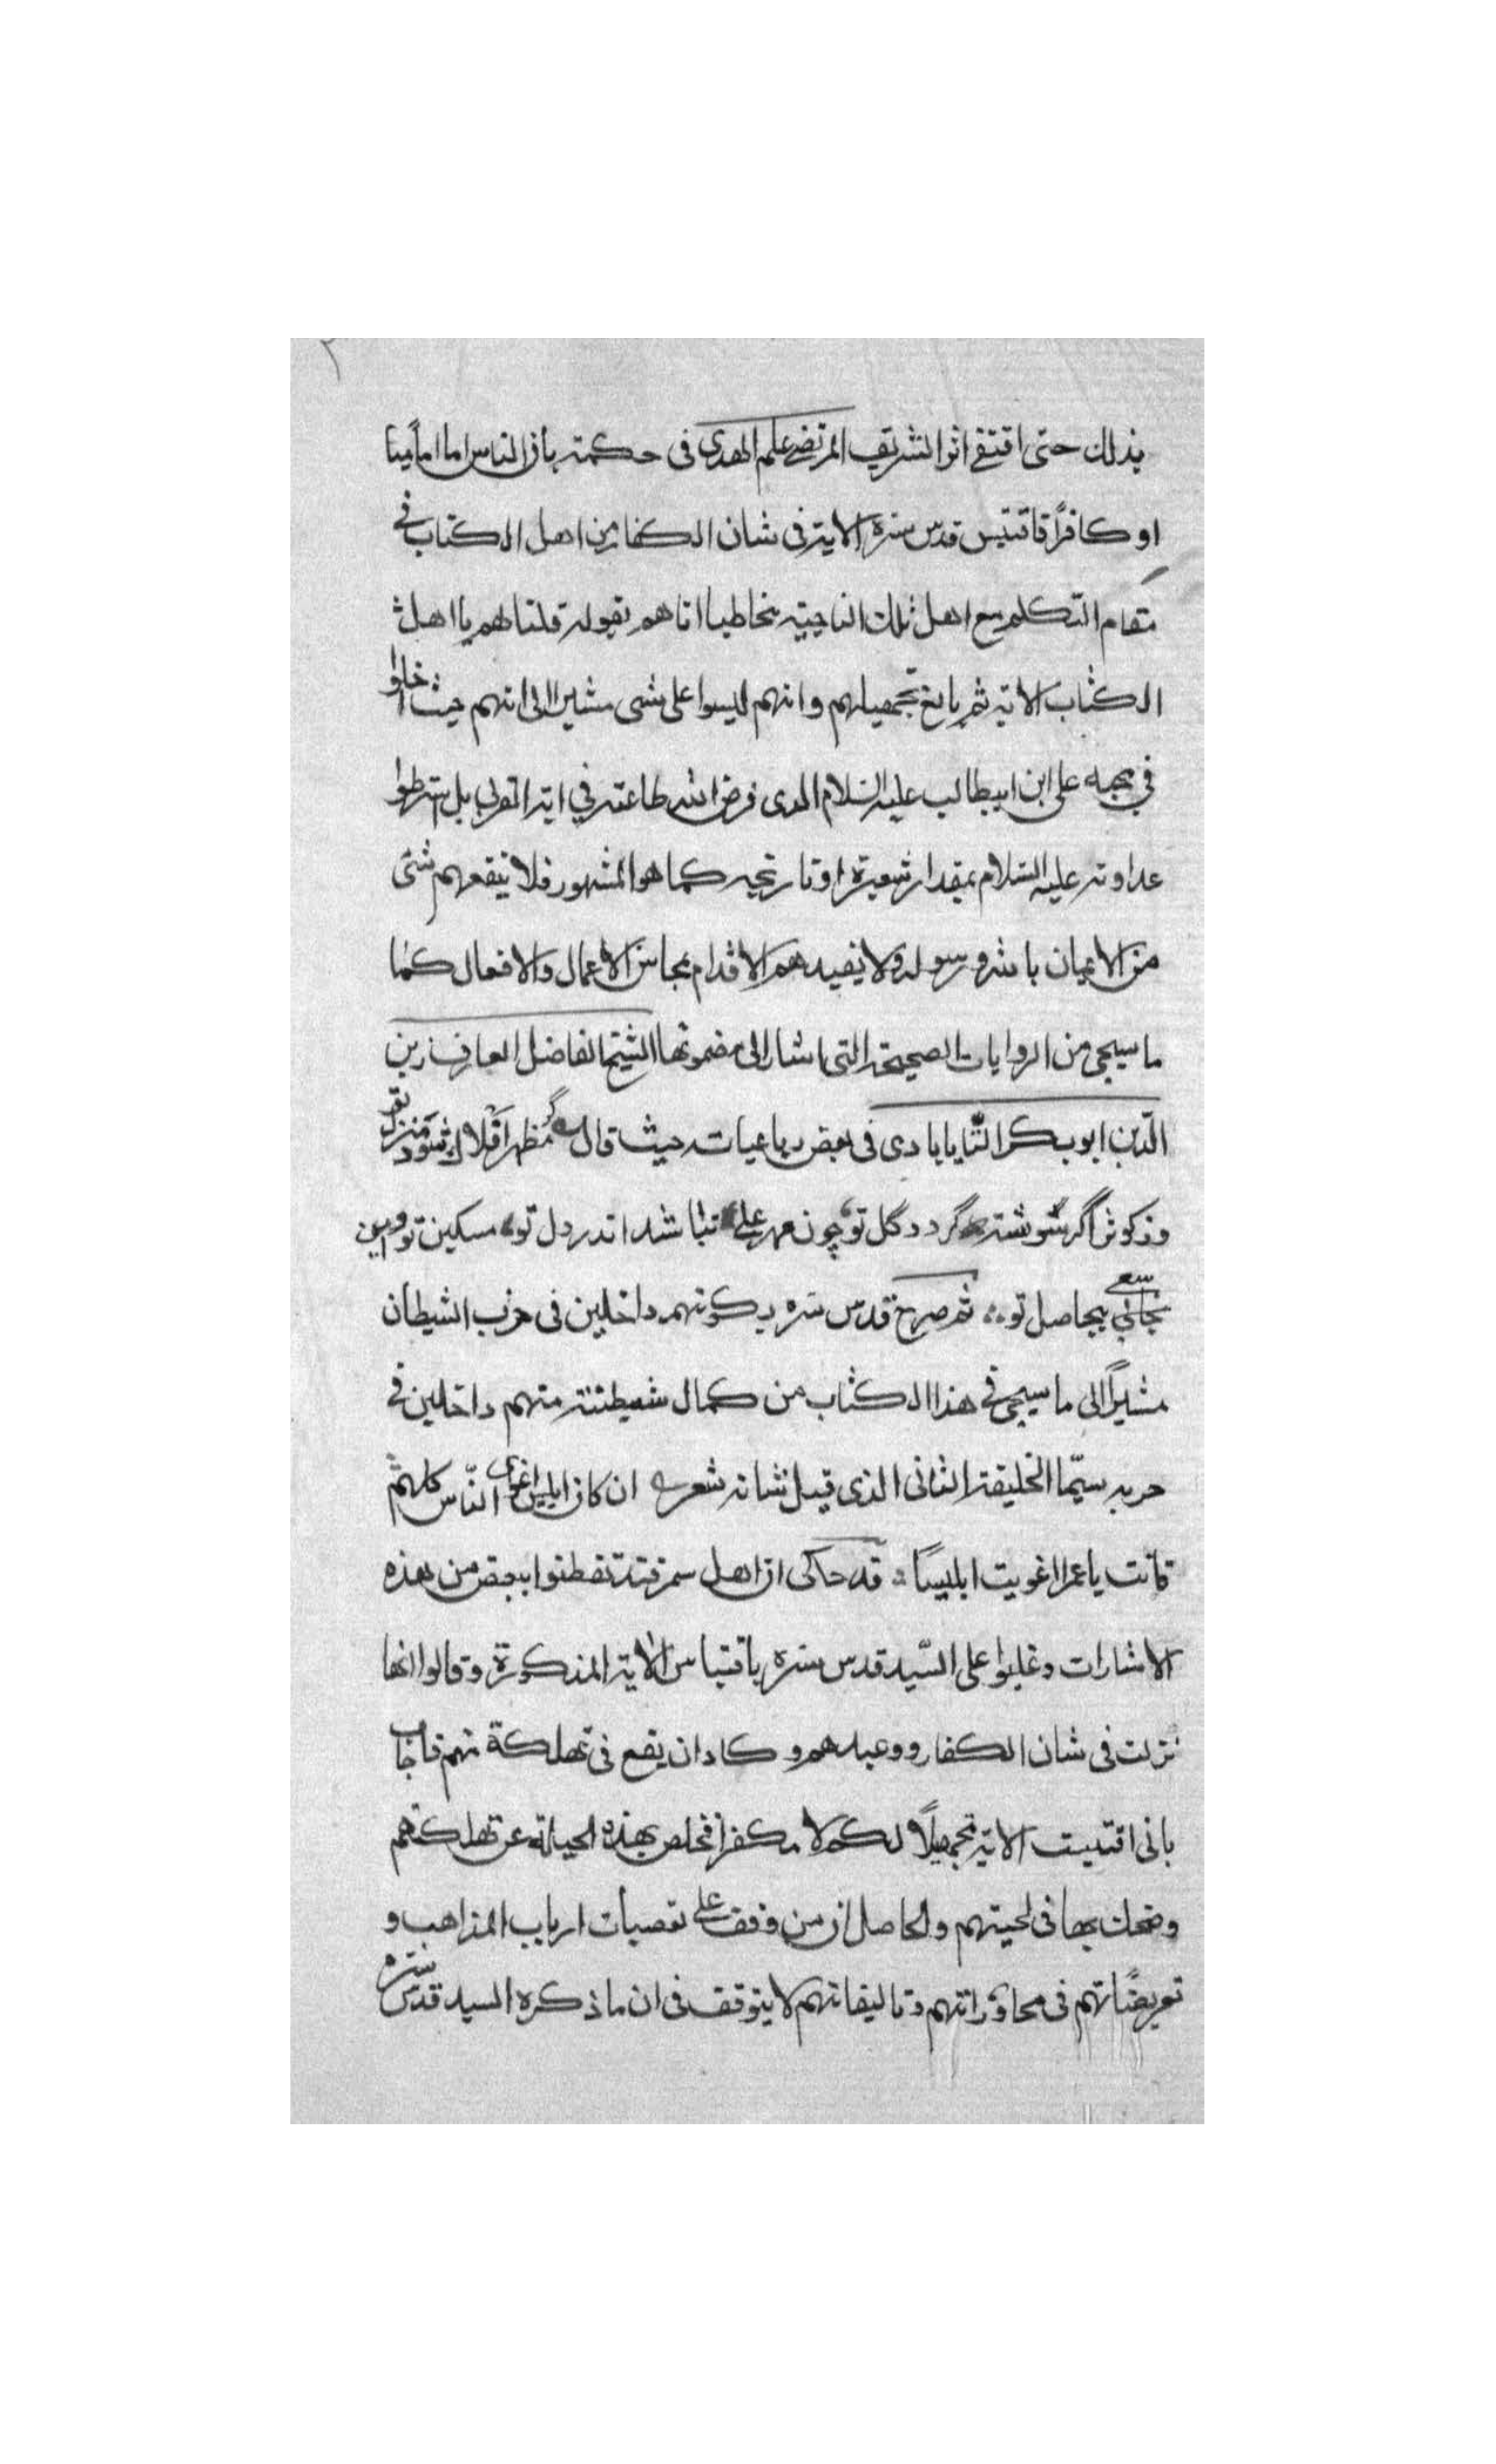 بذلك حتى اقتفى اثر الشريف المرتضى علم الهدى فى حكمه بان الناس اما امامينا
او كافرًا فاقتبس قدس سره الاية فى شان الكفار من اهل الكتاب فى
مقام التكلم مع اهل تلك الناحيته مخاطبا اياهم بقوله قلنا لهم يا اهل
الكتاب الاية ثم بالغ تجهيلهم وانهم ليسوا على شى مشيرا الى انهم حيث اخلوا
في محبه على ابن ابيطالب عليه السلام الذى فرض الله طاعته في اية القربى بل شرطوا
عداوته عليه السلام بمقدار شعيرة او نارنجيه كما هو المشهور فلا ينفعهم شئى
من الايمان بالله ورسوله ولا يفيدهم الاقدام بمحاسن الاعمال والافعال كما
ما سيجى من الروايات الصحيحة التى اشار الى مضمونها الشيخ الفاضل العارف زين
الدين ابو بكر التايابادى فى بعض رباعياته حيث قال گر مظهر افلاك شود منزل تو
وز كوثر اگر سرشته گردد گل تو چون مهر على نباشد اندر دل تو مسكين تو و اين
سعى بيحاصل تو ثم صرح قدس سره بكونهم داخلين فى حزب الشيطان
مشيرًا الى ما سيجى في هذا الكتاب من كمال شيطنته منهم داخلين فى
حربه سيّما الخليفة الثانى الذى قيل بشانه شعر ان كان ابليس اغوى الناس كلهم
فانت يا عمر اغويت ابليسًا قد حاكى ان اهل سمرقند تفطنوا ببعض من هذه
الاشارات وغلبوا على السيد قدس سره باقتباس الاية المذكورة وقالوا انها
نزلت فى شان الكفار ووعيدهم وكاد ان يقع فى تهلكة منهم فاجاب
بانى اقتبست الاية تجهيلًا لكم لا مكفرا فخلص بهذه الحيلة عن تهلكتهم
وضحك بها فى لحيتهم والحاصل ان من وقف على تعصبات ارباب المذاهب و
تعريضاتهم فى محاوراتهم وتاليفاتهم لا يتوقف فى ان ما ذكره السيد قدس سره